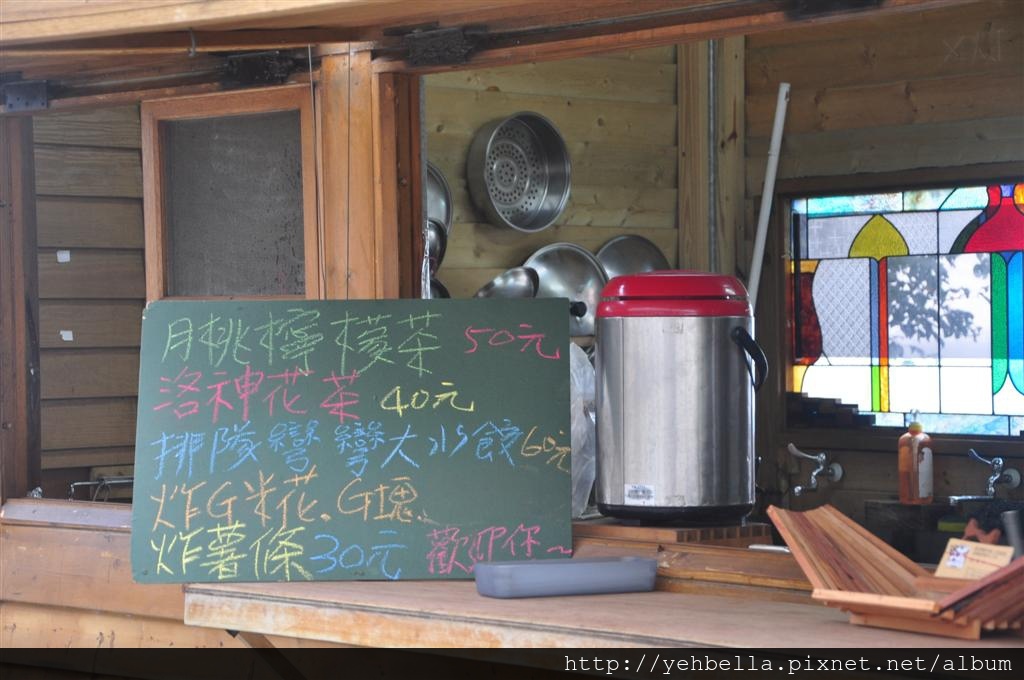 月桃檸檬茶 50元
洛神花茶 40元
排隊彎彎大水餃60元
炸G米花、G塊、
炸薯條30元 歡迎你~
http://yehbella.pixnet.net/album